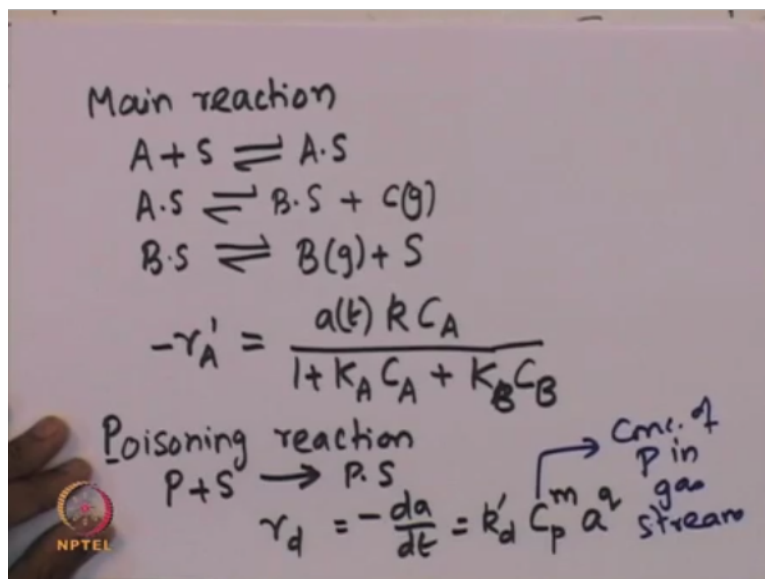 Main reaction
A + S ⇌ A.S
A.S ⇌ B.S + C(g)
B.S ⇌ B(g) + S
-r_A' = a(t) k C_A / (1 + K_A C_A + K_B C_B)
Poisoning reaction
P + S → P.S
r_d = -da/dt = k_d' C_p^m a^q
→ Conc. of
P in
gas
stream
NPTEL